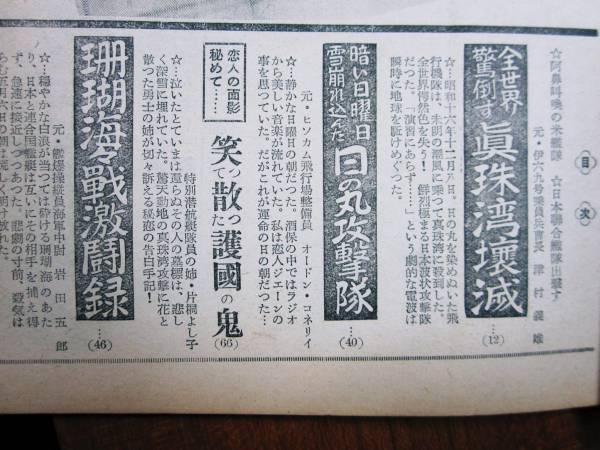 目次
☆阿鼻叫喚の米艦隊 ☆日本聯合艦隊出撃す
元・伊六九号乗員兵曹長 津村義雄
全世界驚倒す 眞珠湾壊滅
…(12)
☆…昭和十六年十二月八日。日の丸を染めぬいた飛
行機隊は、未明の潮風に乗つて真珠湾に殺到した。
全世界愕然色を失う! 鮮烈極まる日本波状攻撃隊
だつた。「演習にあらず……」という劇的な電波は
瞬時に地球を駈けめぐつた。
暗い日曜日 雪崩れ込んだ 日の丸攻撃隊
…(40)
元・ヒツカム飛行場整備員 オードン・コネリイ
☆…静かな日曜日の朝だつた。酒保の中ではラジオ
から美しい音楽が流れていた。私は恋人ジェーンの
事を思つていた。だがこれが運命の日の朝だつた…
恋人の面影秘めて……
笑って散った護國の鬼
(66)
特別潜航艇隊員の姉・片桐よし子
☆…泣いたとていまは還らぬその人の墓標は、悲し
く深雪に埋れていた。驚天動地の真珠湾攻撃に花と
散つた勇士の姉が切々訴える秘恋の告白手記!
珊瑚海々戰激闘録
…(46)
元・艦爆搭乗員海軍中尉 岩田五郎
☆…穏やかな白浪が当つては砕ける珊瑚海のあた
り、日本と連合国艦艇は互いにその相手を捕え得
ず、急速に接近しつつあつた。悲劇の寸前、殺気は
らむ五月六日の朝は淡く明け放れた。